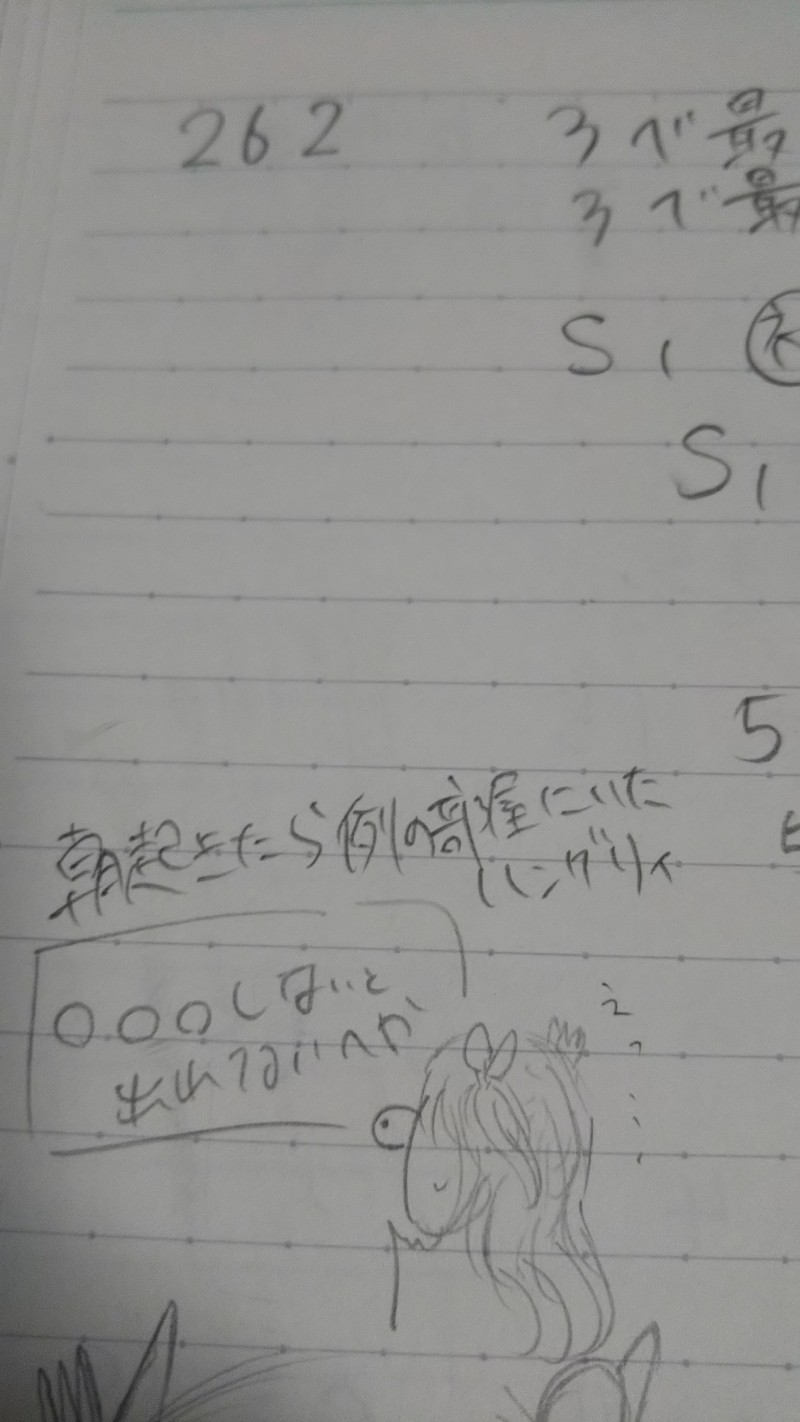 262
3で最
3で最
S1
S1
5
朝起きたら例の部屋にいた
ハングリィ
○○○しないと
出れないへや
え?...